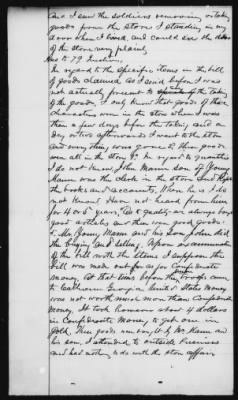 and I saw the soldiers removing or taking
goods from the store I standing in my
door when I lived, and could see the door
of the store very plainly
Ans to 79 Question.
In regard to the specific items in the bill
of goods claimed, as I said before I was
not actually present to the taking
of the goods, I only know that goods of those
characters were in the store when I was
there a few days before the taking and on
day or two afterwards I went to the store
and every thing was gone & these goods
were all in the store & In regard to quantities
I do not know, John Mann son of Young
Mann was the clerk in the store and kept
the books and accounts. When he is I do
not know. Have not heard from him
for 4 or 5 years, Cal Grady, as always buys
good articles and these were good goods.
Mr. Young Mann and his son John did
the buying and selling. Upon examination
of the bill with the items I suppose the
bill was made out for in Confederate
money. At that time before the troops came
to Georgia State Money
was not worth much more than Confederate
Money. It took however about 4 dollars
in Confederate Money to get one in
Gold. These goods were bought by Mr. Mann and
his son, I attended to outside business
and had nothing to do with the store affairs